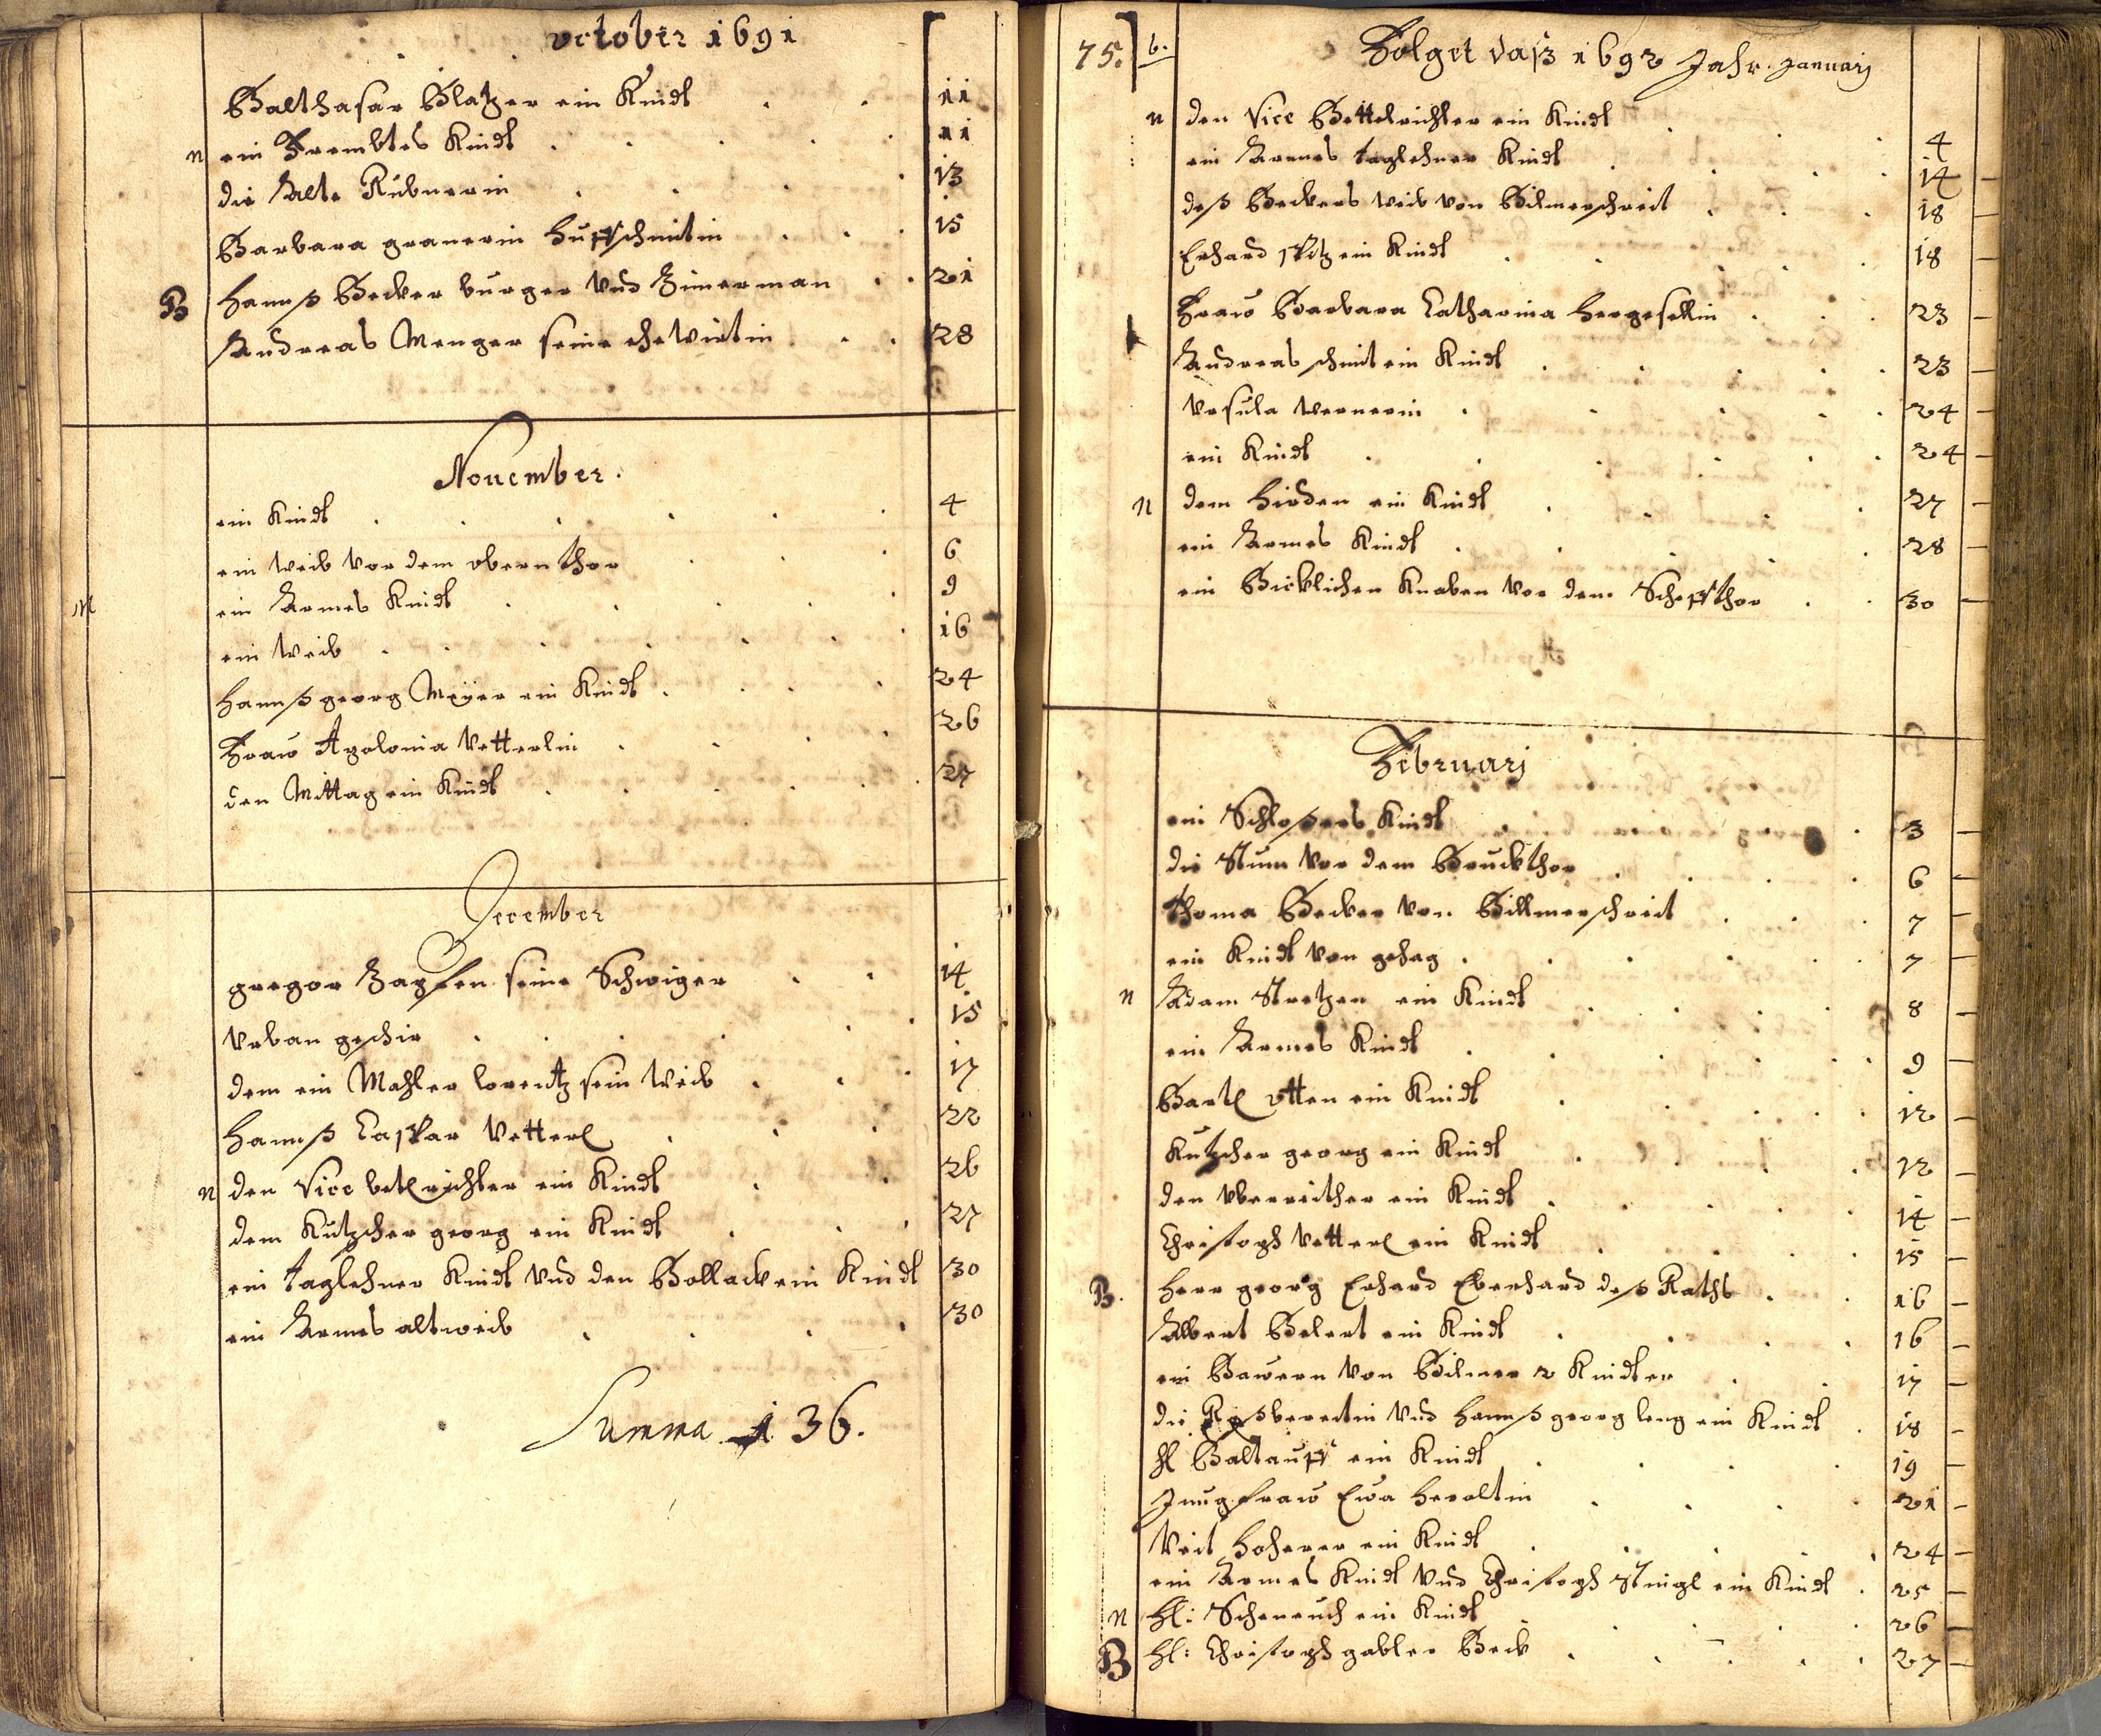 october 1691
Balthasar Blatzer ein Kindt . . 11
n ein Frembtes Kindt . . . . . 11
die Alte Rübnerin . . . . 13
Barbara granerin Huffschmitin . . . 15
B Hannß Becker burger vnd Zimerman . . 21
Andreas Menger seine ehewirtin . . . 28
Nouember.
ein Kindt . . . . . . 4
ein weib vor dem obern thor . . . 6
n ein Armes Kindt . . . . . 9
ein weib . . . . . . . 16
Hannß georg Meÿer ein Kindt . . . . 24
Fraw Apolonia Vetterlin . . . . 26
den Mittag ein Kindt . . . . . 27
December
gregor Zapfen seine Schwiger . . 14
Vrban geschir . . . . . 15
dem ein Mahler lorentz sein weib . . . 17
Hannß Caspar Vetterl . . . 22
n den Vice betlrichter ein Kindt . . 26
dem Kutzscher georg ein Kindt . . . 27
ein taglehner Kindt vnd den Bollack ein Kindt 30
ein Armes alt weib . . . . 30
Summa 136.
75. b. Folget daß 1692 Jahr. Januarj
n den Vice Bettelrichter ein Kindt . . . 4
ein Armes taglehner Kindt . . . . 14
deß Beckers weib von Bilmerschreit . . . 18
Erhard spitz ein Kindt . . . . 18
Fraw Barbara Catharina Hergesellin . . . 23
Andreas schmit ein Kindt . . . . . 23
Vrsula wernerin . . . . . 24
ein Kindt . . . . . . 24
n dem Hirdten ein Kindt . . . . 27
ein Armes Kindt . . . . . 28
ein Knaben vor dem . . 30
Februarj
ein Schloßers Kindt . . 3
die Stum vor dem Bruckthor . . . . 6
Thoma Becker von Billmerschreit . . . 7
ein Kindt von gehag . . . . . . 7
n Adam Stretzen ein Kindt . . . . . 8
ein Armes Kindt . . . . . . 9
Bartl otten ein Kindt . . . . . 12
Kutzscher georg ein Kindt . . . . 12
den vberreither ein Kindt . . . . . 14
Christoph Vetterl ein Kindt . . . . . 15
B. Herr georg Erhard Eberhard deß Raths . . 16
Albert Belert ein Kindt . . . . 16
ein Bawern von Bilmer 2 Kindter . . 17
die vnd Hannß georg leng ein Kindt . 18
H Baltauff ein Kindt . . . . 19
Jungfraw Eua Heroltin . . . . 21
Veit Hoherer ein Kindt . . . . 24
ein Armes Kindt vnd Christoph Stingl ein Kindt . 25
n Hl: Scheneuch ein Kindt . . . 26
B Hl: Christoph gabler Beck . . . . . 27